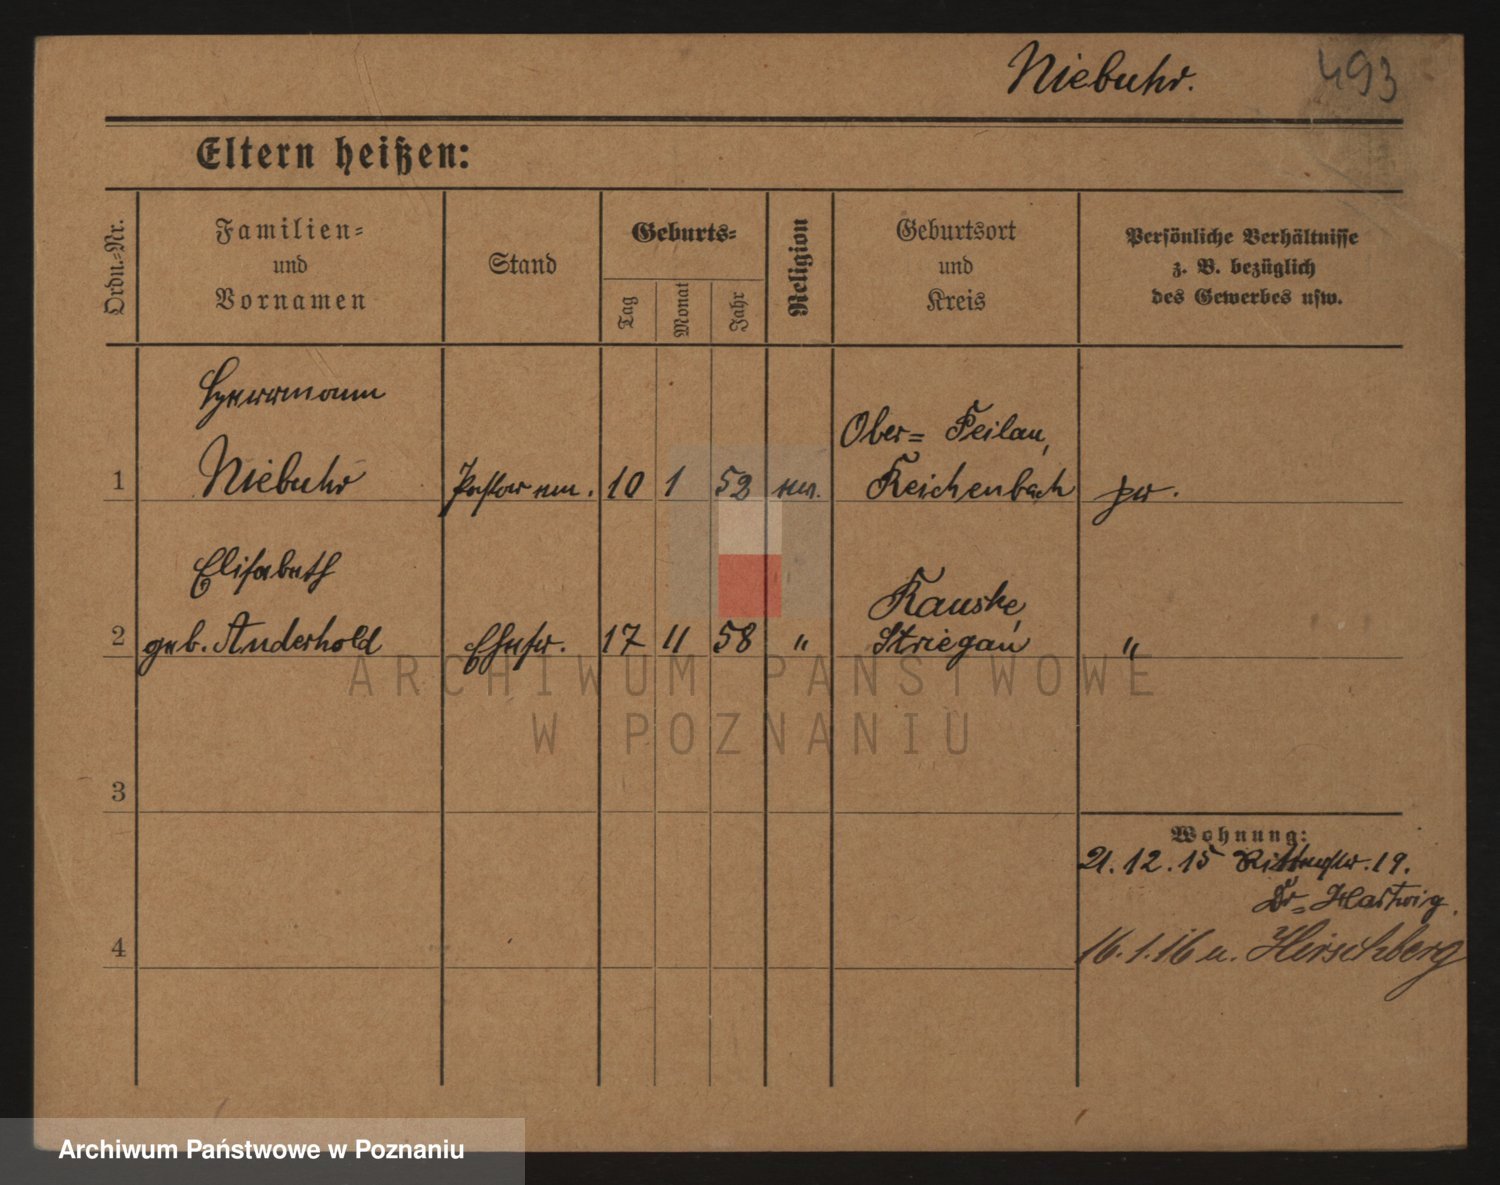 Niebuhr.
493
Eltern heißen:
Ordn.-Nr.
Familien-
und
Vornamen
Stand
Geburts-
Tag
Monat
Jahr
Religion
Geburtsort
und
Kreis
Persönliche Verhältnisse
z. B. bezüglich
des Gewerbes usw.
Herrmann
Ober- Peilau,
1 Niebuhr Pastor em. 10 1 52 ev. Reichenbach pr.
Elisabeth
Kauske,
2 geb. Anderhold Ehefr. 17 11 58 " Striegau "
ARCHIWUM PAŃSTWOWE
W POZNANIU
3
Wohnung:
21.12.15 Ritterstr. 19.
Dr. Hartwig.
4 16.1.16 n. Hirschberg
Archiwum Państwowe w Poznaniu